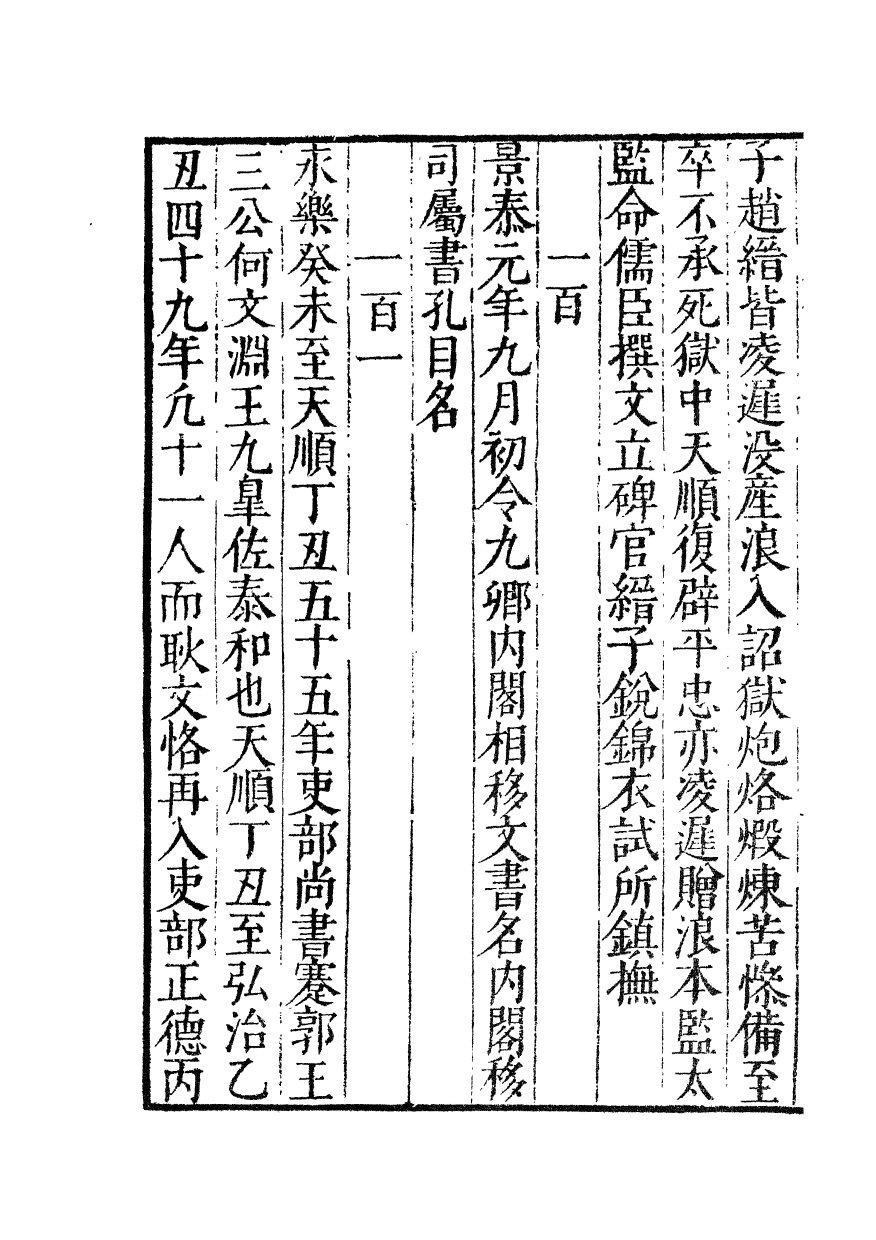 子趙縉皆凌遲没産浪入詔獄炮烙煅煉苦慘備至
卒不承死獄中天順復辟平忠亦凌遲贈浪本監太
監命儒臣撰文立碑官縉子銳錦衣試所鎮撫
一百
景泰元年九月初令九卿内閣相移文書名内閣移
司屬書孔目名
一百一
永樂癸未至天順丁丑五十五年吏部尚書蹇郭王
三公何文淵王九臯佐泰和也天順丁丑至弘治乙
丑四十九年凢十一人而耿文恪再入吏部正德丙